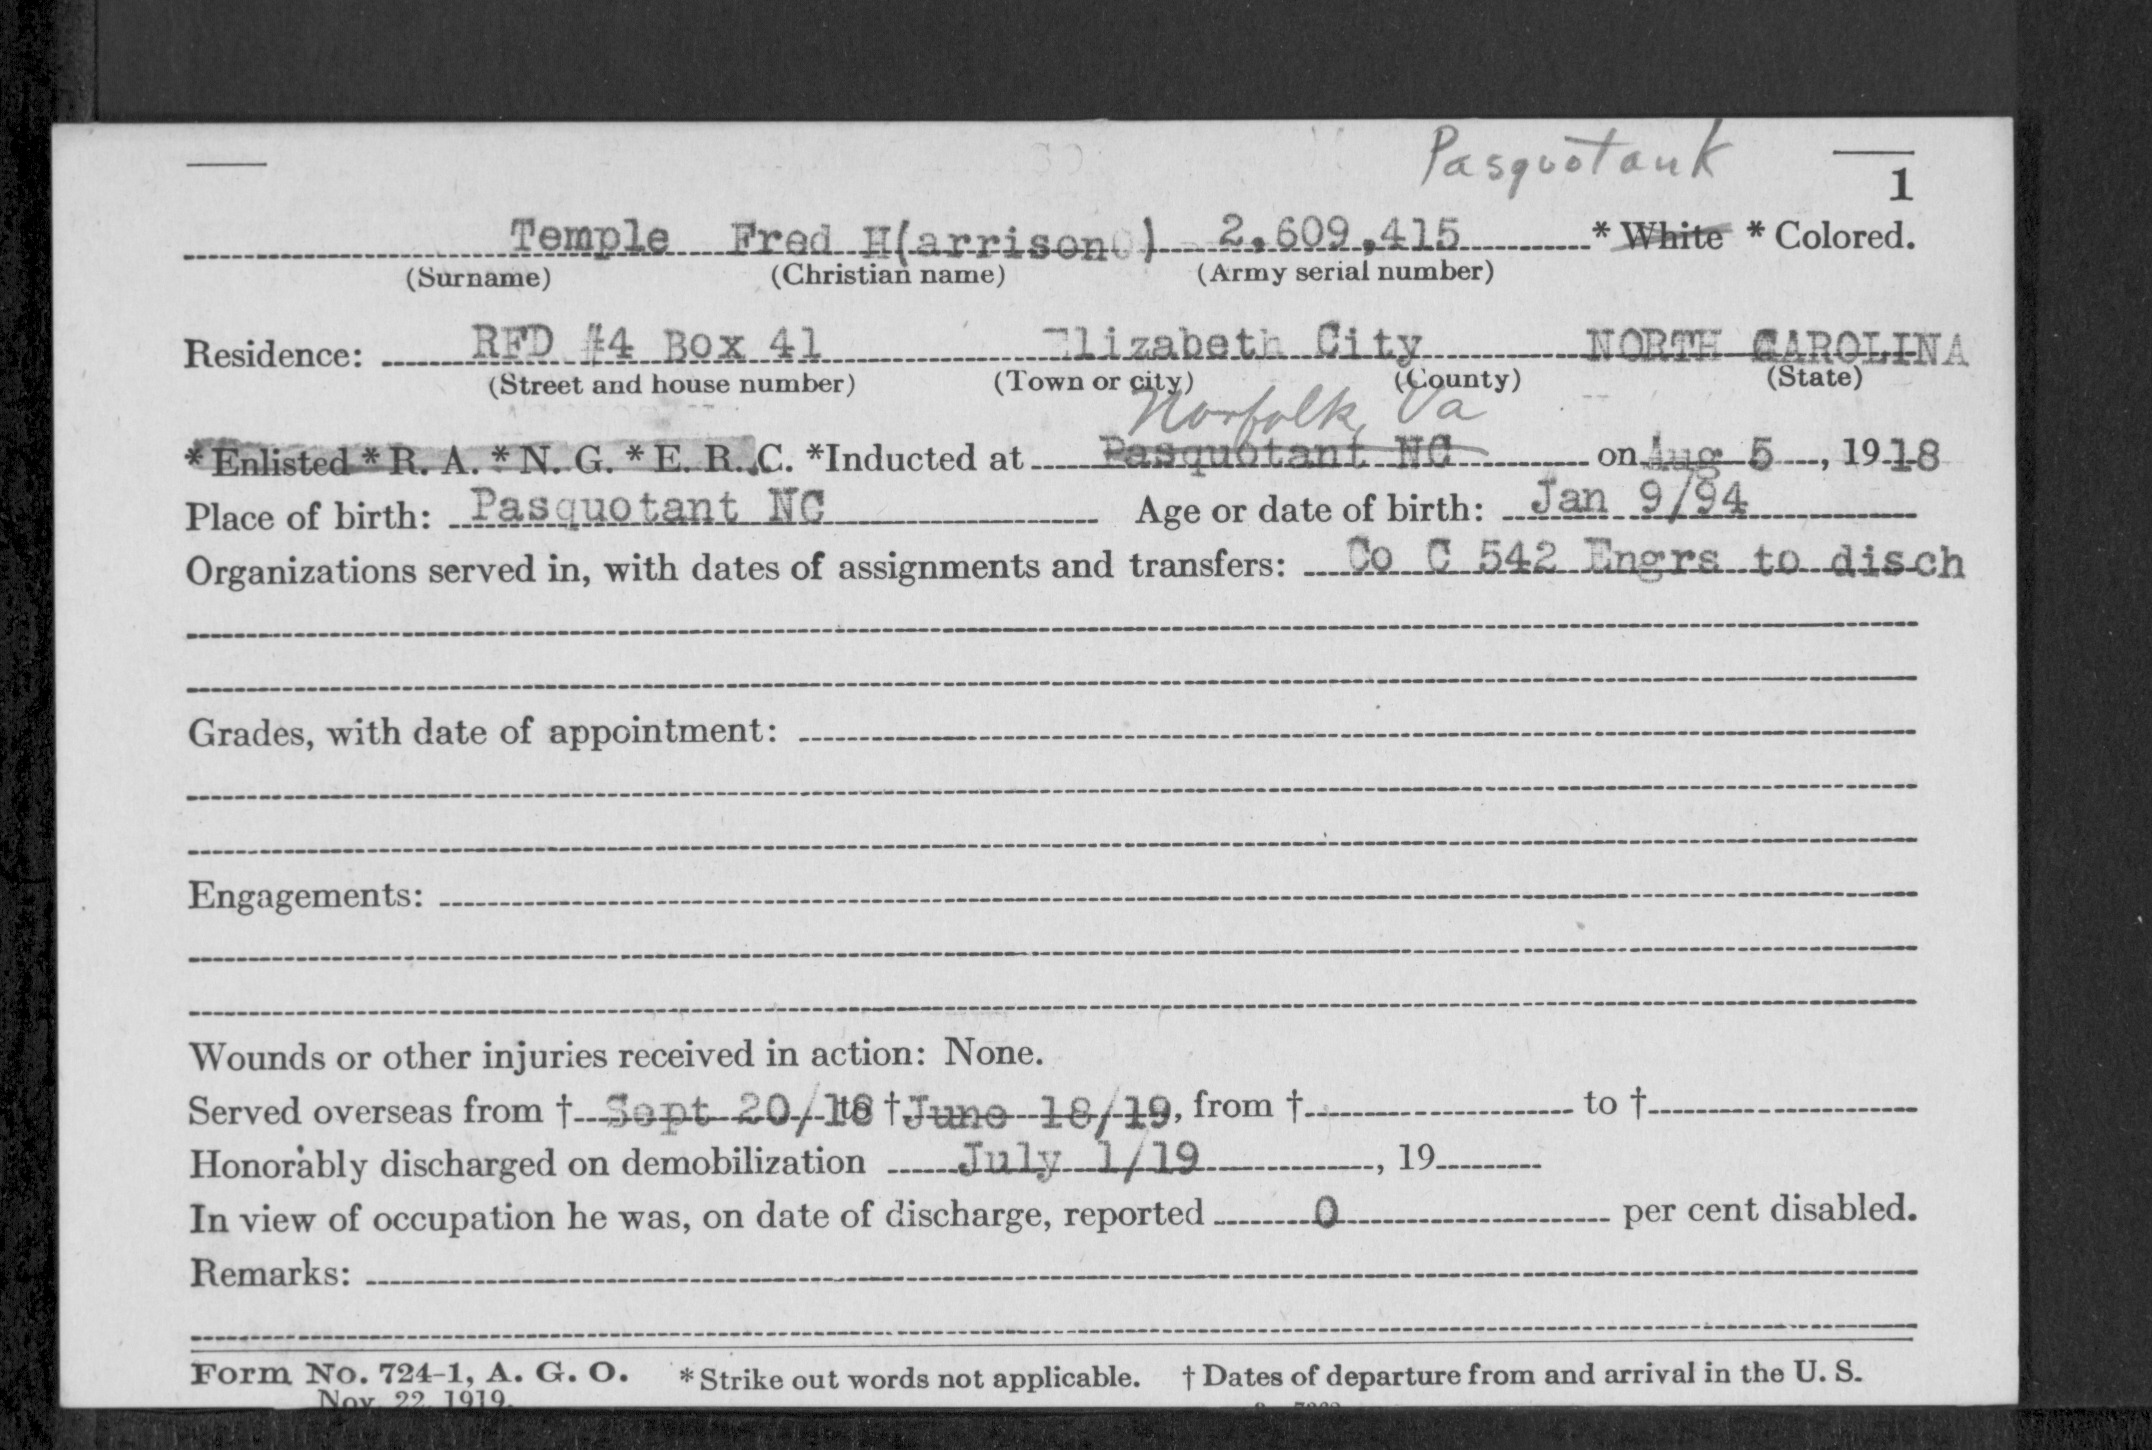 Pasquotank
1
Temple Fred H(arrison ) 2,609,415 * White * Colored.
(Surname) (Christian name) (Army serial number)
Residence: RFD #4 Box 41 Elizabeth City NORTH CAROLINA
(Street and house number) (Town or city) (County) (State)
Norfolk, Va
* Enlisted * R. A. * N. G. * E. R. C. *Inducted at Pasquotant NC on Aug 5, 1918
Place of birth: Pasquotant NC Age or date of birth: Jan 9/94
Organizations served in, with dates of assignments and transfers: Co C 542 Engrs to disch
Grades, with date of appointment:
Engagements:
Wounds or other injuries received in action: None.
Served overseas from † Sept 20/18 to † June 18/19, from † to †
Honorably discharged on demobilization July 1/19, 19
In view of occupation he was, on date of discharge, reported 0 per cent disabled.
Remarks:
Form No. 724-1, A. G. O. *Strike out words not applicable. † Dates of departure from and arrival in the U. S.
Nov. 22, 1919.